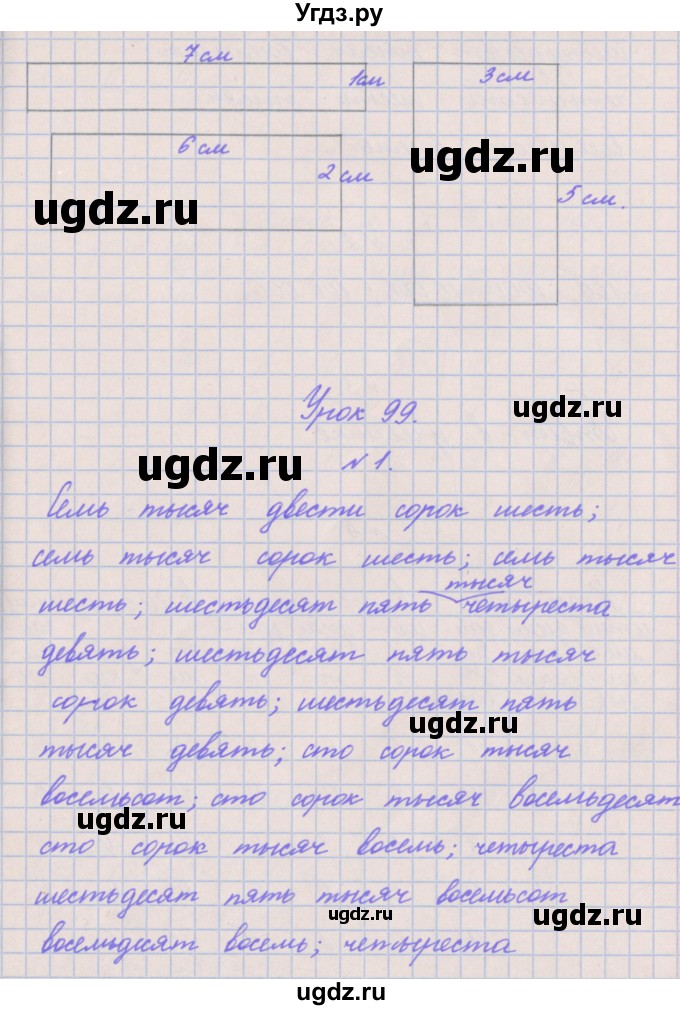 Угдз.ру
7 см
1 см
3 см
6 см
2 см
ugdz.ru
ugdz.ru
5 см.
Урок 99.
ugdz.ru
ugdz.ru
№ 1.
Семь тысяч двести сорок шесть;
семь тысяч сорок шесть; семь тысяч
тысяч
шесть; шестьдесят пять четыреста
девять; шестьдесят пять тысяч
сорок девять; шестьдесят пять
ugdz.ru
тысяч девять; сто сорок тысяч
восемьсот; сто сорок тысяч восемьдесят
ugdz.ru
сто сорок тысяч восемь; четыреста
шестьдесят пять тысяч восемьсот
ugdz.ru
ugdz.ru
восемьдесят восемь; четыреста
ugdz.ru